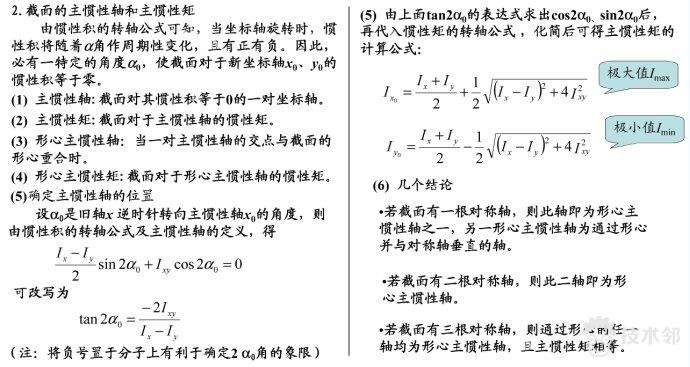 2.截面的主惯性轴和主惯性矩
由惯性积的转轴公式可知，当坐标轴旋转时，惯
性积将随着α角作周期性变化，且有正有负。因此，
必有一特定的角度α₀，使截面对于新坐标轴x₀、y₀的
惯性积等于零。
(1) 主惯性轴:截面对其惯性积等于0的一对坐标轴。
(2) 主惯性矩:截面对于主惯性轴的惯性矩。
(3) 形心主惯性轴: 当一对主惯性轴的交点与截面的
形心重合时。
(4) 形心主惯性矩:截面对于形心主惯性轴的惯性矩。
(5)确定主惯性轴的位置
设α₀是旧轴x 逆时针转向主惯性轴x₀的角度，则
由惯性积的转轴公式及主惯性轴的定义，得
(I_x − I_y)/2 sin 2α₀ + I_xy cos 2α₀ = 0
可改写为
tan 2α₀ = −2I_xy/(I_x − I_y)
(注: 将负号置于分子上有利于确定2 α₀角的象限)
(5) 由上面tan2α₀的表达式求出cos2α₀、sin2α₀后，
再代入惯性矩的转轴公式，化简后可得主惯性矩的
计算公式:
极大值I_max
I_x₀ = (I_x + I_y)/2 + 1/2 √((I_x − I_y)² + 4I²_xy)
极小值I_min
I_y₀ = (I_x + I_y)/2 − 1/2 √((I_x − I_y)² + 4I²_xy)
(6) 几个结论
•若截面有一根对称轴，则此轴即为形心主
惯性轴之一，另一形心主惯性轴为通过形心
并与对称轴垂直的轴。
•若截面有二根对称轴，则此二轴即为形
心主惯性轴。
•若截面有三根对称轴，则通过形心的任一
轴均为形心主惯性轴，且主惯性矩相等。
技术邻